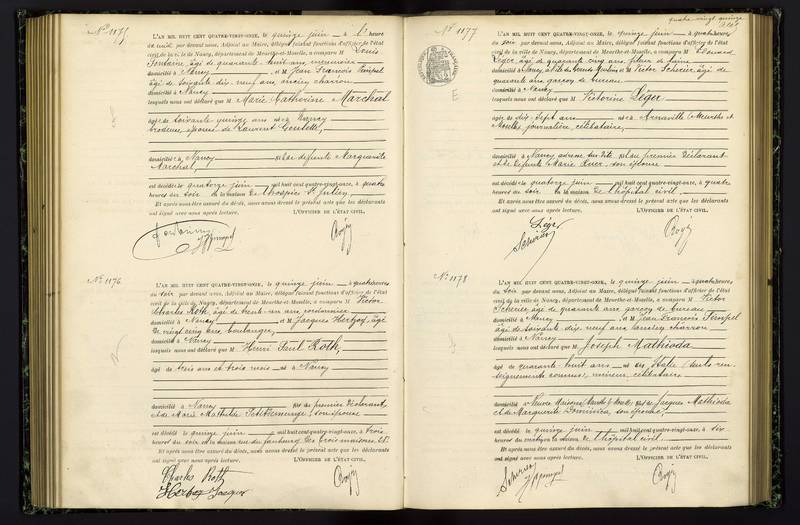 No 1175
L'AN MIL HUIT CENT QUATRE-VINGT-ONZE, le quinze juin à l' heure
du midi par devant nous, Adjoint au Maire, délégué faisant fonctions d'officier de l'état
civil de la ville de Nancy, département de Meurthe-et-Moselle, a comparu M Louis
Fontaine, âgé de quarante huit ans, menuisier
domicilié à Nancy et M Jean François
âgé de soixante dix neuf ans, ancien charron
domicilié à Nancy
lesquels nous ont déclaré que M Marie Catherine Marchal
âgée de soixante quinze ans née Nancy
brodeuse, épouse de Laurent
domiciliée à Nancy fille de défunte Marguerite
Marchal,
est décédée le quatorze juin mil huit cent quatre-vingt-onze, à quatre
heures du soir en la maison de l'hospice St Julien
Et après nous être assuré du décès, nous avons dressé le présent acte que les déclarants
ont signé avec nous après lecture. L'OFFICIER DE L'ÉTAT CIVIL,
No 1176
L'AN MIL HUIT CENT QUATRE-VINGT-ONZE, le quinze juin à quatre heures
du soir par devant nous, Adjoint au Maire, délégué faisant fonctions d'officier de l'état
civil de la ville de Nancy, département de Meurthe-et-Moselle, a comparu M Victor
Charles Roth, âgé de trente un ans, cordonnier
domicilié à Nancy et M Jacques Herbez, âgé
de vingt cinq ans, boulanger,
domicilié à Nancy
lesquels nous ont déclaré que M Henri Paul Roth,
âgé de trois ans et trois mois né à Nancy
domicilié à Nancy fils du premier déclarant
et de Marie Mathilde Petitdemange, son épouse
est décédé le quinze juin mil huit cent quatre-vingt-onze, à trois
heures du soir en la maison rue du faubourg des trois maisons
Et après nous être assuré du décès, nous avons dressé le présent acte que les déclarants
ont signé avec nous après lecture. L'OFFICIER DE L'ÉTAT CIVIL,
Charles Roth
Herbez Jacques
quatre vingt quinze
No 1177
L'AN MIL HUIT CENT QUATRE-VINGT-ONZE, le quinze juin à quatre heures
du soir par devant nous, Adjoint au Maire, délégué faisant fonctions d'officier de l'état
civil de la ville de Nancy, département de Meurthe-et-Moselle, a comparu M Edouard
Léger, âgé de quarante cinq ans,
domicilié à Nancy, et M Victor Scherier âgé de
quarante ans garçon de bureau
domicilié à Nancy
lesquels nous ont déclaré que M Victorine Léger
âgée de dix sept ans née Arnaville (Meurthe et
Moselle) journalière, célibataire,
domiciliée à Nancy fille du premier déclarant
et de défunte Marie son épouse
est décédée le quatorze juin mil huit cent quatre-vingt-onze, à quatre
heures du soir en la maison de l'hôpital civil
Et après nous être assuré du décès, nous avons dressé le présent acte que les déclarants
ont signé avec nous après lecture. L'OFFICIER DE L'ÉTAT CIVIL,
Léger
No 1178
L'AN MIL HUIT CENT QUATRE-VINGT-ONZE, le quinze juin à quatre heures
du soir par devant nous, Adjoint au Maire, délégué faisant fonctions d'officier de l'état
civil de la ville de Nancy, département de Meurthe-et-Moselle, a comparu M Victor
Scherier âgé de quarante ans garçon de bureau
domicilié à Nancy et M Jean François
âgé de soixante dix neuf ans, ancien charron
domicilié à Nancy
lesquels nous ont déclaré que M Joseph Mathioda
âgé de quarante huit ans né en Italie (sans ren
seignements connus) mineur, célibataire
domicilié à Neuves Maisons fils de Jacques Mathioda
et de Marguerite son épouse,
est décédé le quinze juin mil huit cent quatre-vingt-onze, à six
heures du matin en la maison de l'hôpital civil
Et après nous être assuré du décès, nous avons dressé le présent acte que les déclarants
ont signé avec nous après lecture. L'OFFICIER DE L'ÉTAT CIVIL,